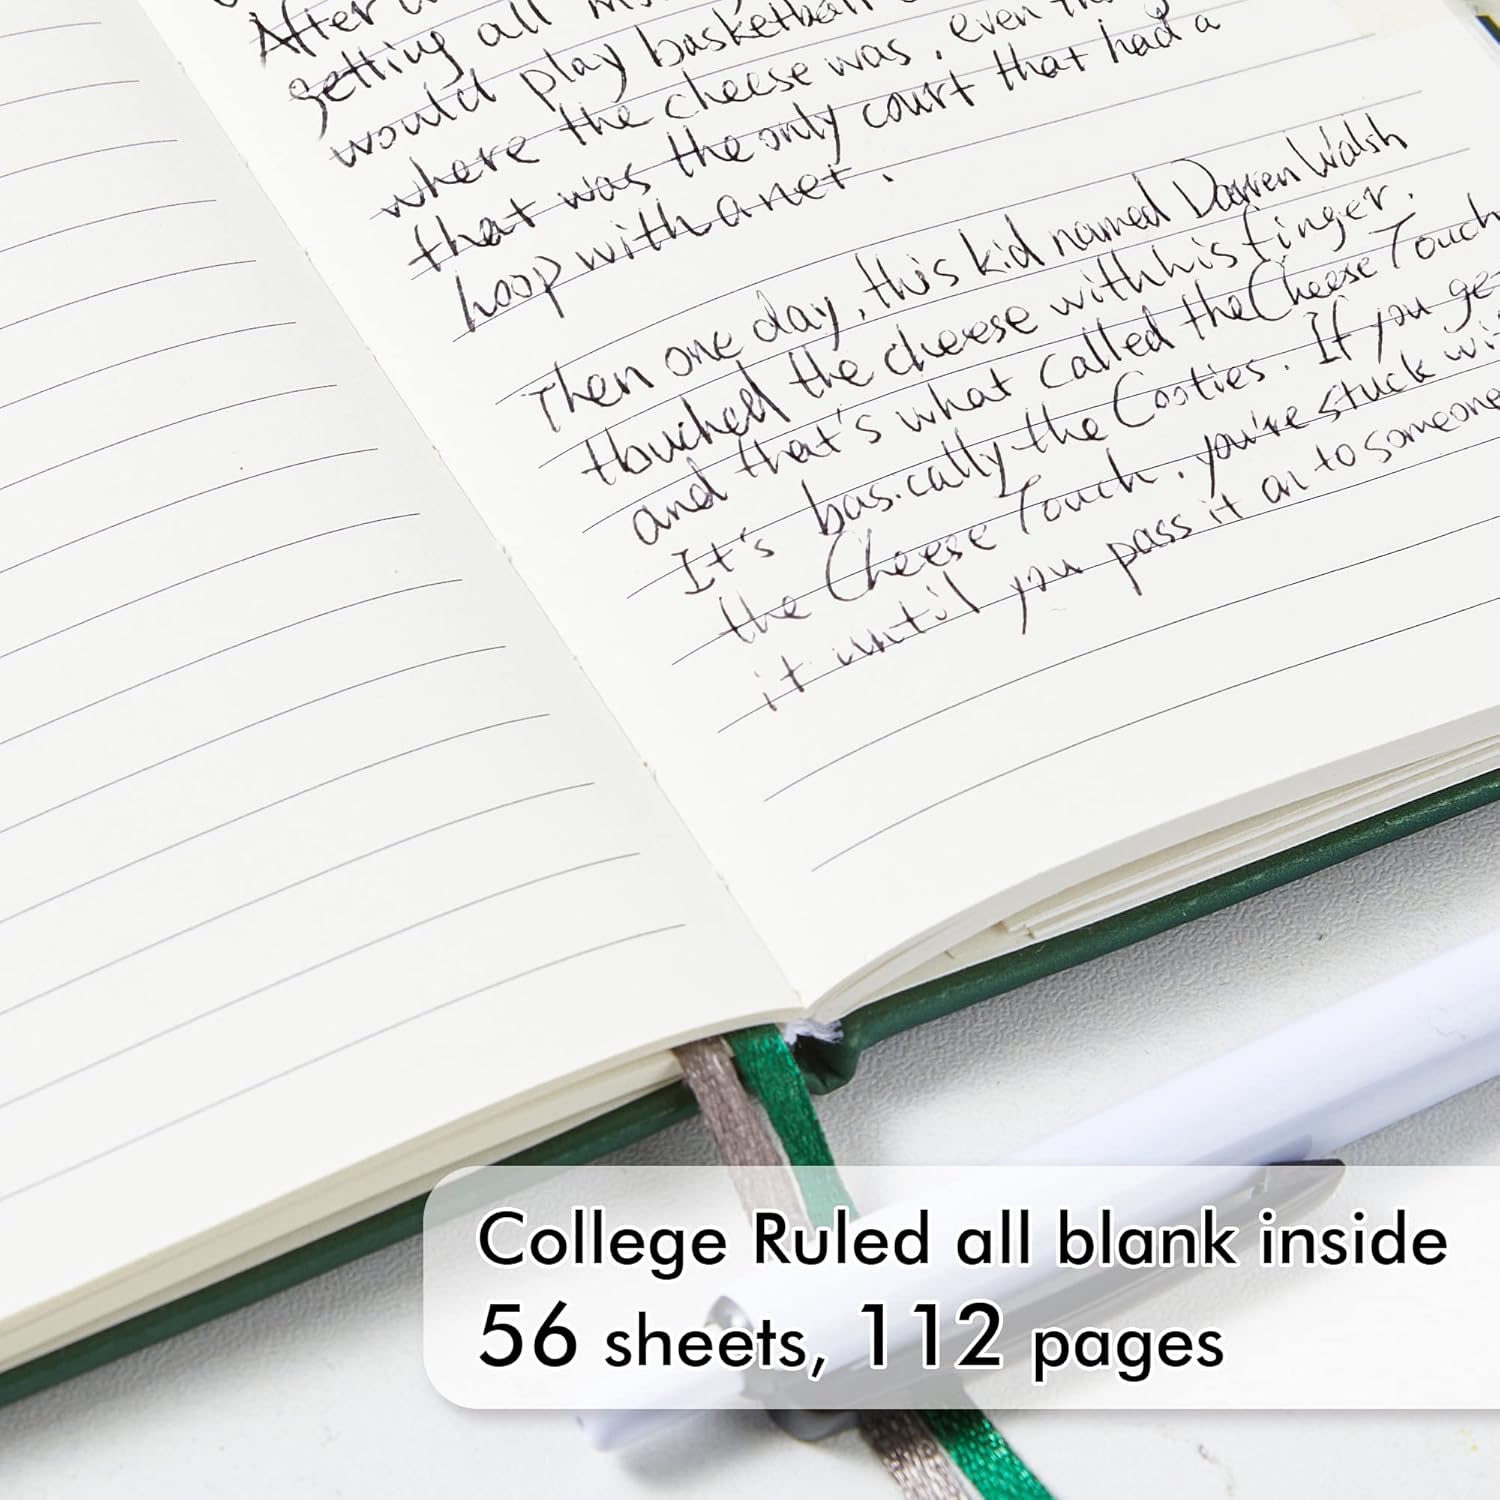 After
getting all
would play basketball
where the cheese was, even
that was the only court that had a
hoop with a net.
Then one day, this kid named Darren Walsh
touched the cheese with his finger.
and that's what called the Cheese Touch
It's basically the Cooties. If you ge
the Cheese Touch. you're stuck wit
it until you pass it on to someone
College Ruled all blank inside
56 sheets, 112 pages